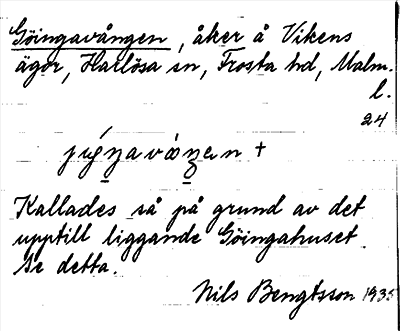 Göingavången, åker å Vikens
ägor, Harlösa sn, Frosta hd, Malm.
l.
24
Kallades så på grund av det
upptill liggande Göingahuset
se detta.
Nils Bengtsson 1935